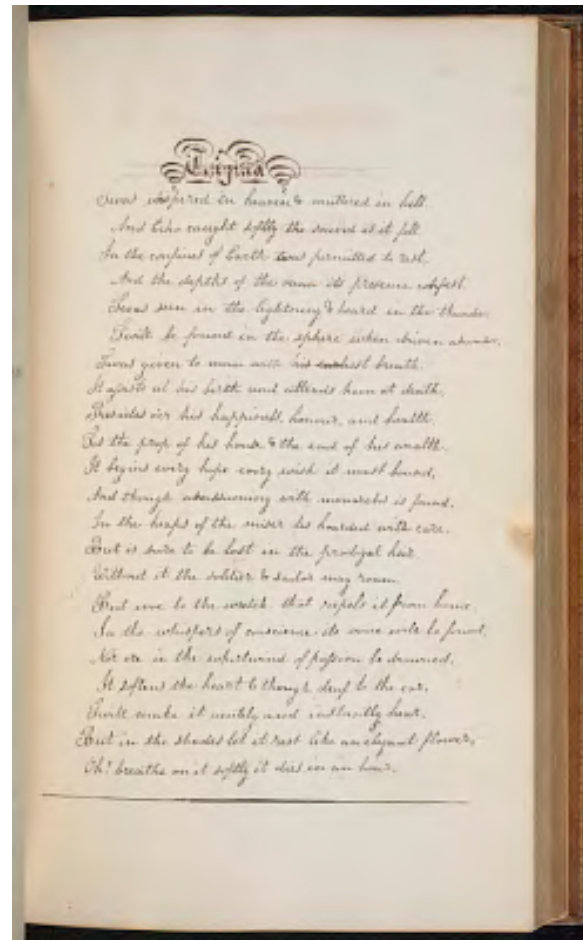 Enigma
Twas whispered in heaven & muttered in hell
And Echo caught softly the sound as it fell
In the confines of Earth twas permitted to rest,
And the depths of the ocean its presence confest.
Twas seen in the lightning & heard in the thunder,
Twill be found in the sphere when driven asunder,
Twas given to man with his earliest breath
It assists at his birth and attends him at death,
Presides oer his happiness, honour, and health
Is the prop of his house & the end of his wealth.
It begins every hope every wish it must bound,
And though unassuming with monarchs is found.
In the heaps of the miser tis hoarded with care.
But is sure to be lost in the prodigal heir
Without it the soldier & sailor may roam
But woe to the wretch that expels it from home.
In the whispers of conscience its voice will be found,
Nor ere in the whirlwind of passion be drowned,
It softens the heart & though deaf to the ear,
Twill make it acutely and instantly hear.
But in the shades let it rest like an elegant flower,
Oh! breathe on it softly it dies in an hour.